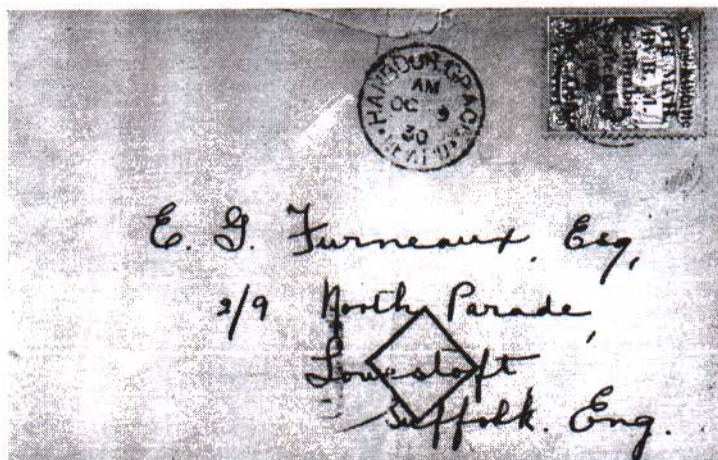 HARBOUR GRACE
AM
OC 9
30
E. G. Furneaux, Esq,
2/9 North Parade,
Lowestoft
Suffolk. Eng.